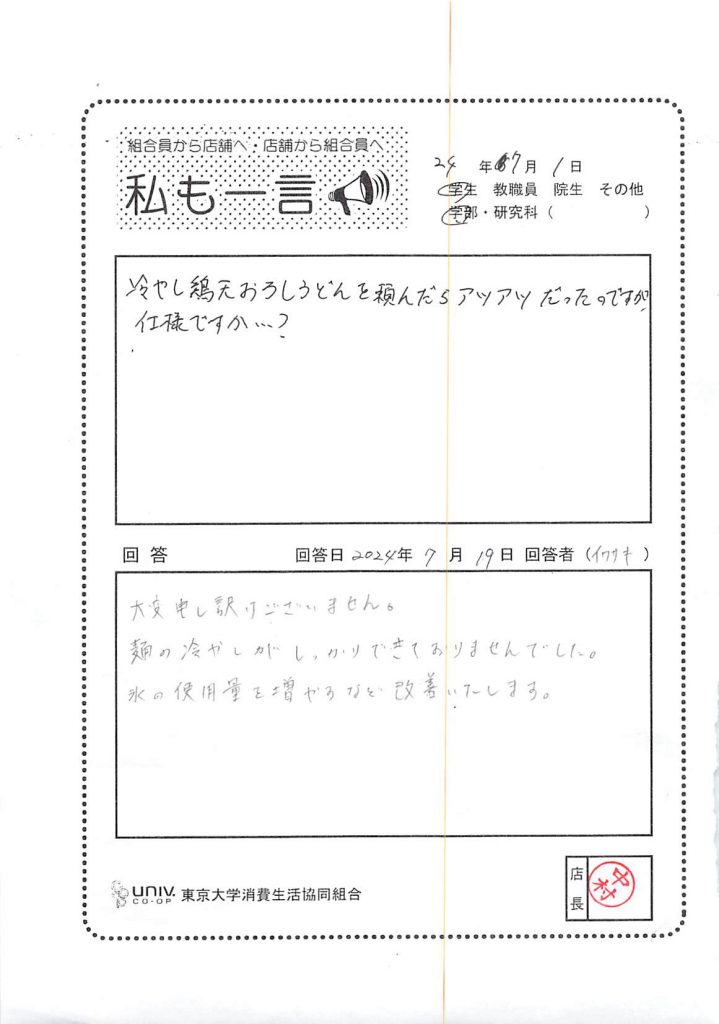 組合員から店舗へ・店舗から組合員へ
私も一言
24 年 7月 1日
学生 教職員 院生 その他
学部・研究科( )
冷やし鶏天おろしうどんを頼んだらアツアツだったのですが
仕様ですか…?
回答 回答日 2024年 7月 19日 回答者(イワサキ)
大変申し訳けございません。
麺の冷やしがしっかりできておりませんでした。
氷の使用量を増やるなど改善いたします。
UNIV.
CO-OP
東京大学消費生活協同組合
店長
中村